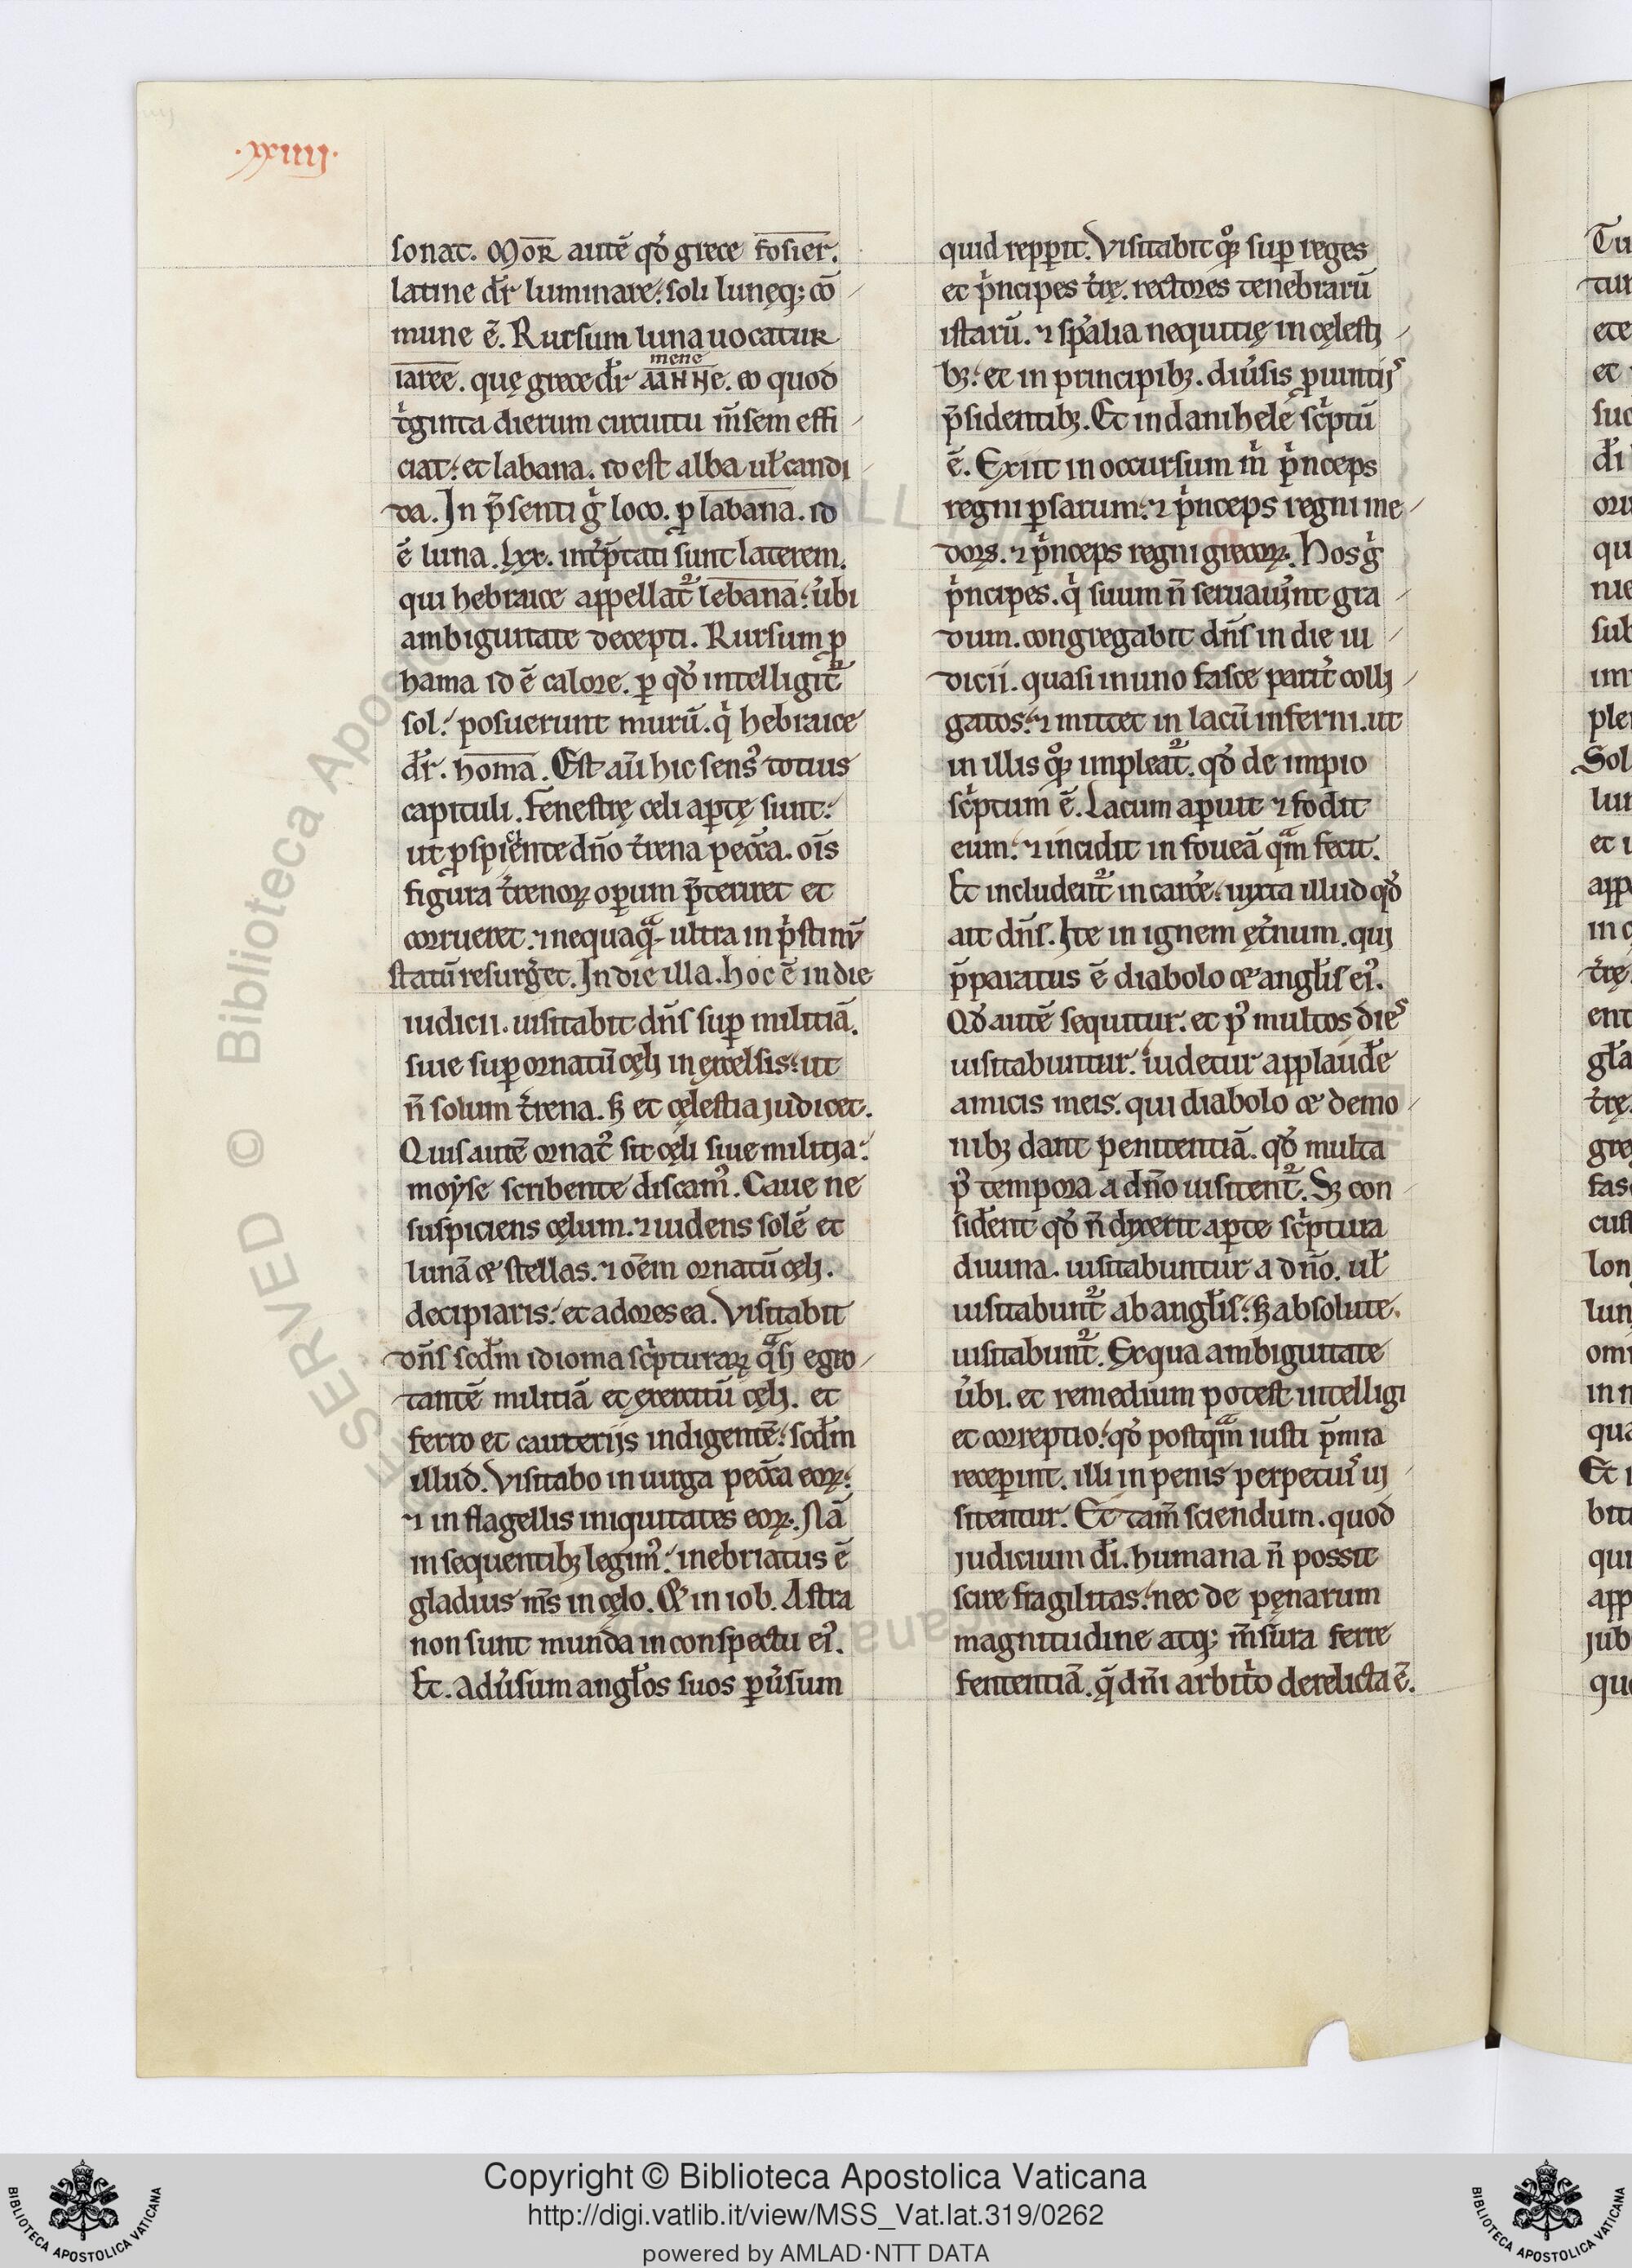 .xxiiij.
sonat. Mor̄ autē qđ grece fosier.
latine dr̄ luminare: soli lunęq; cō
mune ē. Rursum luna uocatur
iaree. quę grece dr̄ ΜΗΝΗ. eo quod
mene
t'ginta dierum circuitu m̄sem effi
ciat: et labana. id est alba uł candi
da. In p̄senti g̊ loco. ꝑ labana. id
ē luna. lxx. int'p̄tati sunt laterem.
qui hebraice appellat᷑ lebana: u'bi
ambiguitate decepti. Rursum ꝑ
hama id ē calore. ꝑ qđ intelligit᷑
sol: posuerunt murū. qͥ hebraice
dr̄. homa. Est aū hic sensꝰ totius
capituli. Fenestrę celi aꝑtę sunt:
ut ꝑspiciente dn̄o t'rena pecc̄a. oīs
figura t'renoꝝ oꝑum p̄teriret et
corrueret. ⁊ nequaqᷓ ultra in p'stinū
statū resurg'et. In die illa. hoc ē in die
iudicii. uisitabit dn̄s suꝑ militiā.
siue suꝑ ornatū cęli in excelsis: ut
n̄ solum t'rena. sꝫ et cęlestia judicet.
Quis autē ornatꝰ sit cęli siue militia:
moyse scribente discamꝰ. Caue ne
suspiciens cęlum. ⁊ uidens solē et
lunā & stellas. ⁊ oēm ornatū cęli.
decipiaris: et adores ea. Visitabit
dn̄s scd̄m idioma sc'pturaꝝ qᷓsi egro
tantē militiā et exercitū cęli. et
ferro et cauterijs indigentē: scd̄m
illud. Visitabo in uirga pecc̄a eoꝝ:
⁊ in flagellis iniquitates eoꝝ. Nā
in sequentibꝫ legimꝰ: inebriatus ē
gladius m̄s in cęlo. & in iob. Astra
non sunt munda in conspectu eiꝰ.
Et. adu'sum angl̄os suos ꝑu'sum
quid repꝑit. Visitabit qͦꝫ suꝑ reges
et p'ncipes t'rę. rectores tenebrarū
istarū. ⁊ sp̄alia nequitię in cęlesti
bꝫ: et in principibꝫ. diu'sis ꝓuintijs
p̄sidentibꝫ. Et in danihele sc'ptū
ē. Exiit in occursum m̄ p'nceps
regni ꝑsarum: ⁊ p'nceps regni me
doꝝ. ⁊ p'nceps regni grecoꝝ. Hos g̊
p'ncipes. qͥ suum n̄ seruauer̄nt gra
dum. congregabit dn̄s in die iu
dicii. quasi in uno fasce parit' colli
gatos: ⁊ mittet in lacū inferni. ut
in illis qͦꝫ impleat᷑. qđ de impio
sc'ptum ē. Lacum aꝑuit ⁊ fodit
eum: ⁊ incidit in foueā qᷓm fecit.
Et includent᷑ in carce: iuxta illud qđ
ait dn̄s. Ite in ignem ęt'num. qui
p̄paratus ē diabolo & angl̄is eiꝰ.
Qđ autē sequitur. et pꝰ multos dies
uisitabuntur. uidetur applaud'e
amicis meis. qui diabolo & demo
nibꝫ dant penitentiā. qđ multa
pꝰ tempora a dn̄o uisitent᷑. Sꝫ con
sid'ent qđ n̄ dixerit aꝑte sc'ptura
diuina. uisitabuntur a dn̄o. uł
uisitabunt᷑ ab angl̄is: sꝫ absolute.
uisitabunt᷑. Ex qua ambiguitate
u'bi. et remedium potest intelligi
et correptio: qđ postqᷓm iusti p̄mia
receꝑint. illi in penis perpetuis ui
sitentur. Et tam̄ sciendum. quod
judicium dī. humana n̄ possit
scire fragilitas: nec de pęnarum
magnitudine atq; m̄sura ferre
sententiā. q̄ dn̄i arbit'o derelicta ē.
Copyright © Biblioteca Apostolica Vaticana
http://digi.vatlib.it/view/MSS_Vat.lat.319/0262
powered by AMLAD·NTT DATA